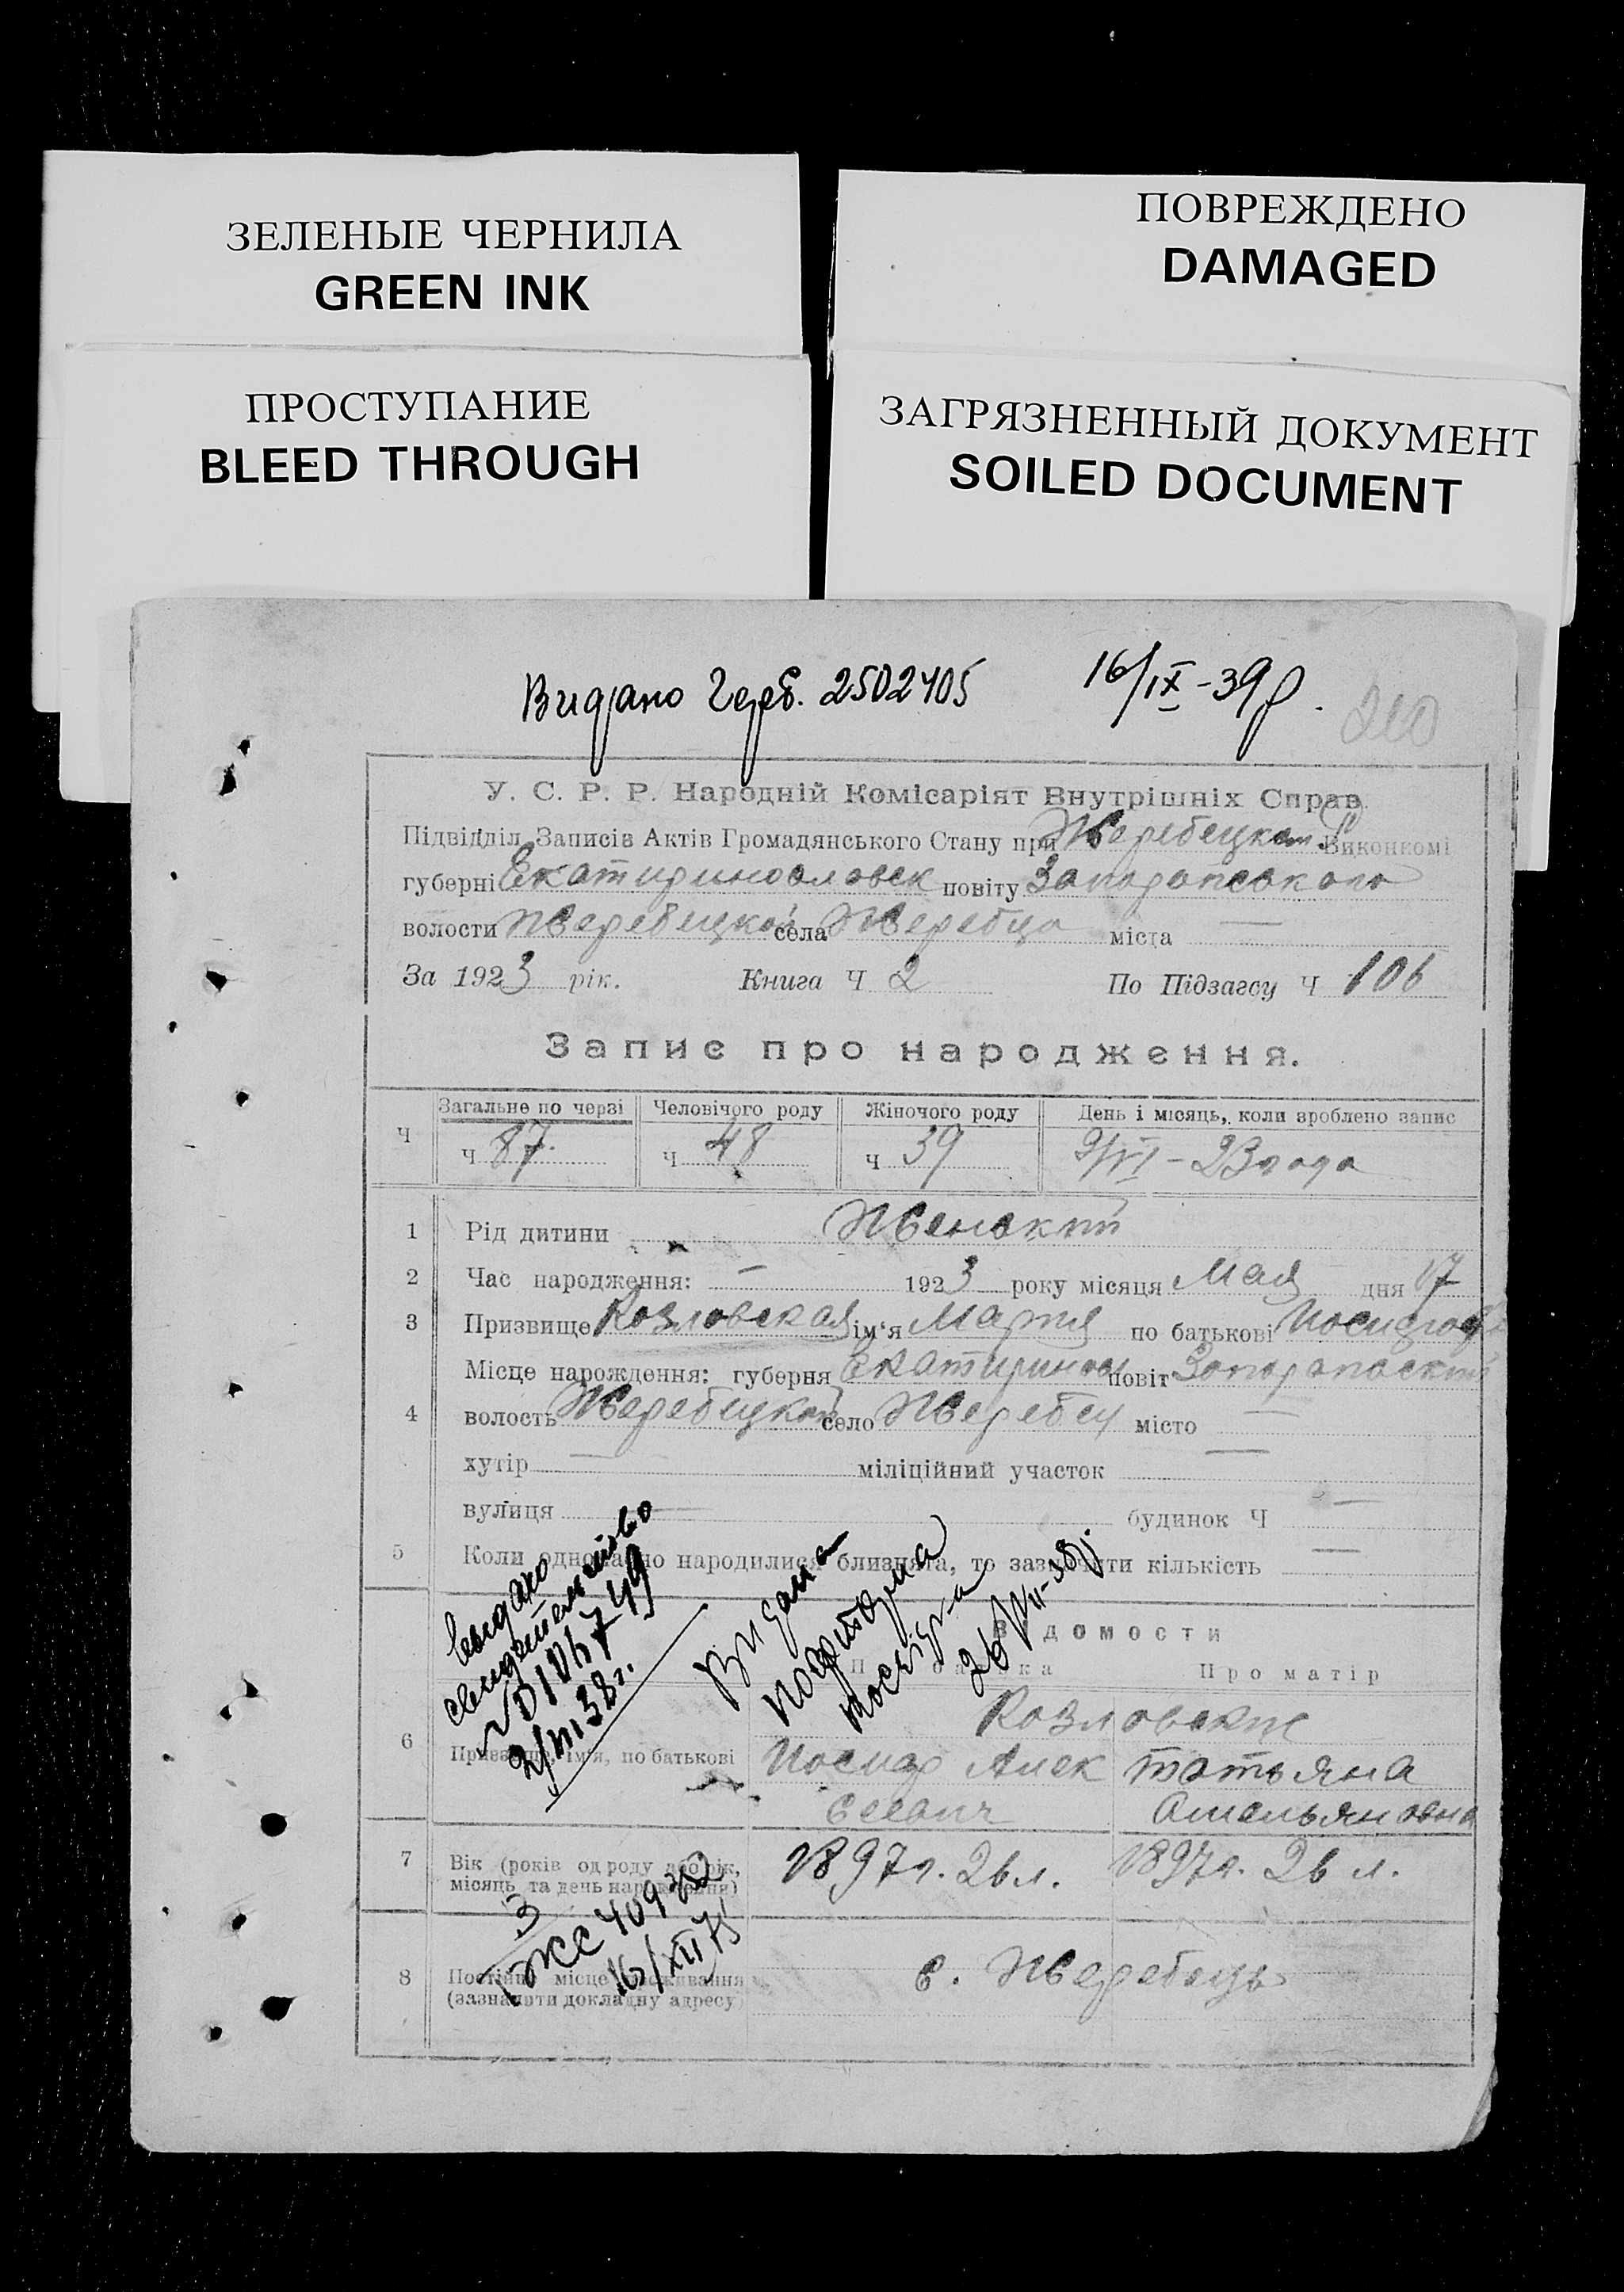 ЗЕЛЕНЫЕ ЧЕРНИЛА
GREEN INK
ПОВРЕЖДЕНО
DAMAGED
ПРОСТУПАНИЕ
BLEED THROUGH
ЗАГРЯЗНЕННЫЙ ДОКУМЕНТ
SOILED DOCUMENT
Видано Герб. 2502405 16/IX-39р.
210
У. С. Р. Р. Народній Комісаріят Внутрішніх Справ
Підвідділ Записів Актів Громадянського Стану при Жеребецком Виконкомі
губерні Екатиринославск повіту Запорапского
волости Жеребецкой села Жеребца міста —
За 1923 рік. Книга Ч 2 По Підзагсу Ч 106
Запис про народження.
Загальне по черзі Человічого роду Жіночого роду День і місяць, коли зроблено запис
Ч Ч 87 Ч 48 Ч 39 9/VI - 23 года
1 Рід дитини Женский
2 Час народження: — 1923 року місяця Мая дня 17
3 Призвище Козловская ім'я Мария по батькові
Місце нарождення: губерня Екатиринос повіт
4 волость Жеребецкой село Жеребец місто —
хутір — міліційний участок —
вулиця — будинок Ч —
5 Коли одночасно народилися близнята, то зазначити кількість —
Выдано
свидетельство
2/III 38г.
Видана
26/VII-38р.
Відомости
Про батька Про матір
Козловские
6 Призвище, ім'я, по батькові Иосиф Алек Татьяна
сеевич Омельяновна
7 Вік (років од роду або рік, місяць та день народження) 1897г. 26 л. 1897г. 26 л.
ЖС 409382
16/XII 75
8 Постійне місце проживання (зазначити докладну адресу) с. Жеребець